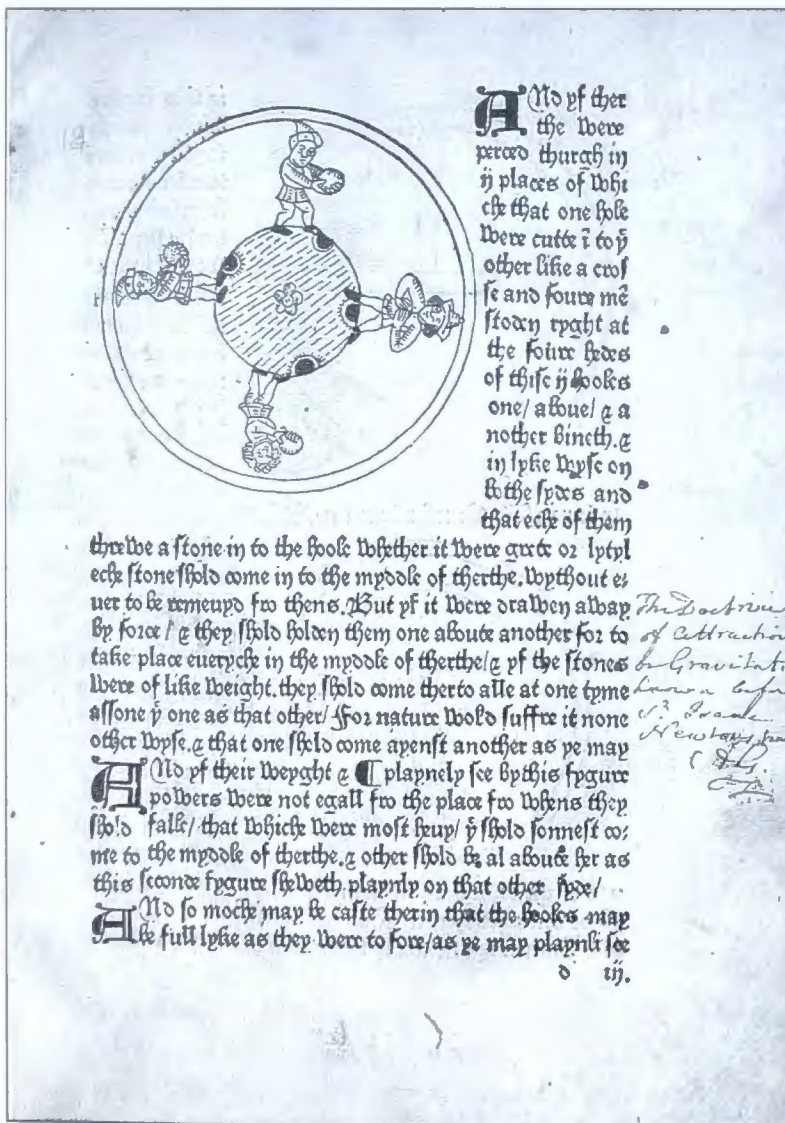 ANd yf ther
the were
perced thurgh in
ij places of whi
che that one hole
were cutte ī to yͤ
other like a cros
se and foure mē
stoden ryght at
the foure hedes
of thise ij hooles
one/ aboue/ & a
nother bineth. &
in lyke wyse on
bothe sydes and
that eche of them
threwe a stone in to the hoole whether it were grete or lytyl
eche stone shold come in to the myddle of therthe. wythout e/
uer to be remeuyd fro thens. But yf it were drawen away
by force / & they shold holden them one aboute another for to
take place eueryche in the myddle of therthe/ & yf the stones
were of like weight. they shold come therto alle at one tyme
assone yͤ one as that other/ For nature wold suffre it none
other wyse. & that one shold come ayenst another as ye may
ANd yf their weyght & ¶ playnely see by this fygure
powers were not egall fro the place fro whens they
shold falle/ that whiche were most heuy/ yͭ shold sonnest co/
me to the myddle of therthe. & other shold be al aboute her as
this seconde fygure sheweth playnly on that other syde/
ANd so moche may be caste therin that the hooles may
be full lyke as they were to fore/ as ye may playnli see
d iij.
The Doctrine
of Attraction
or Gravitat
known befo
Sr. Isaac
Newtons